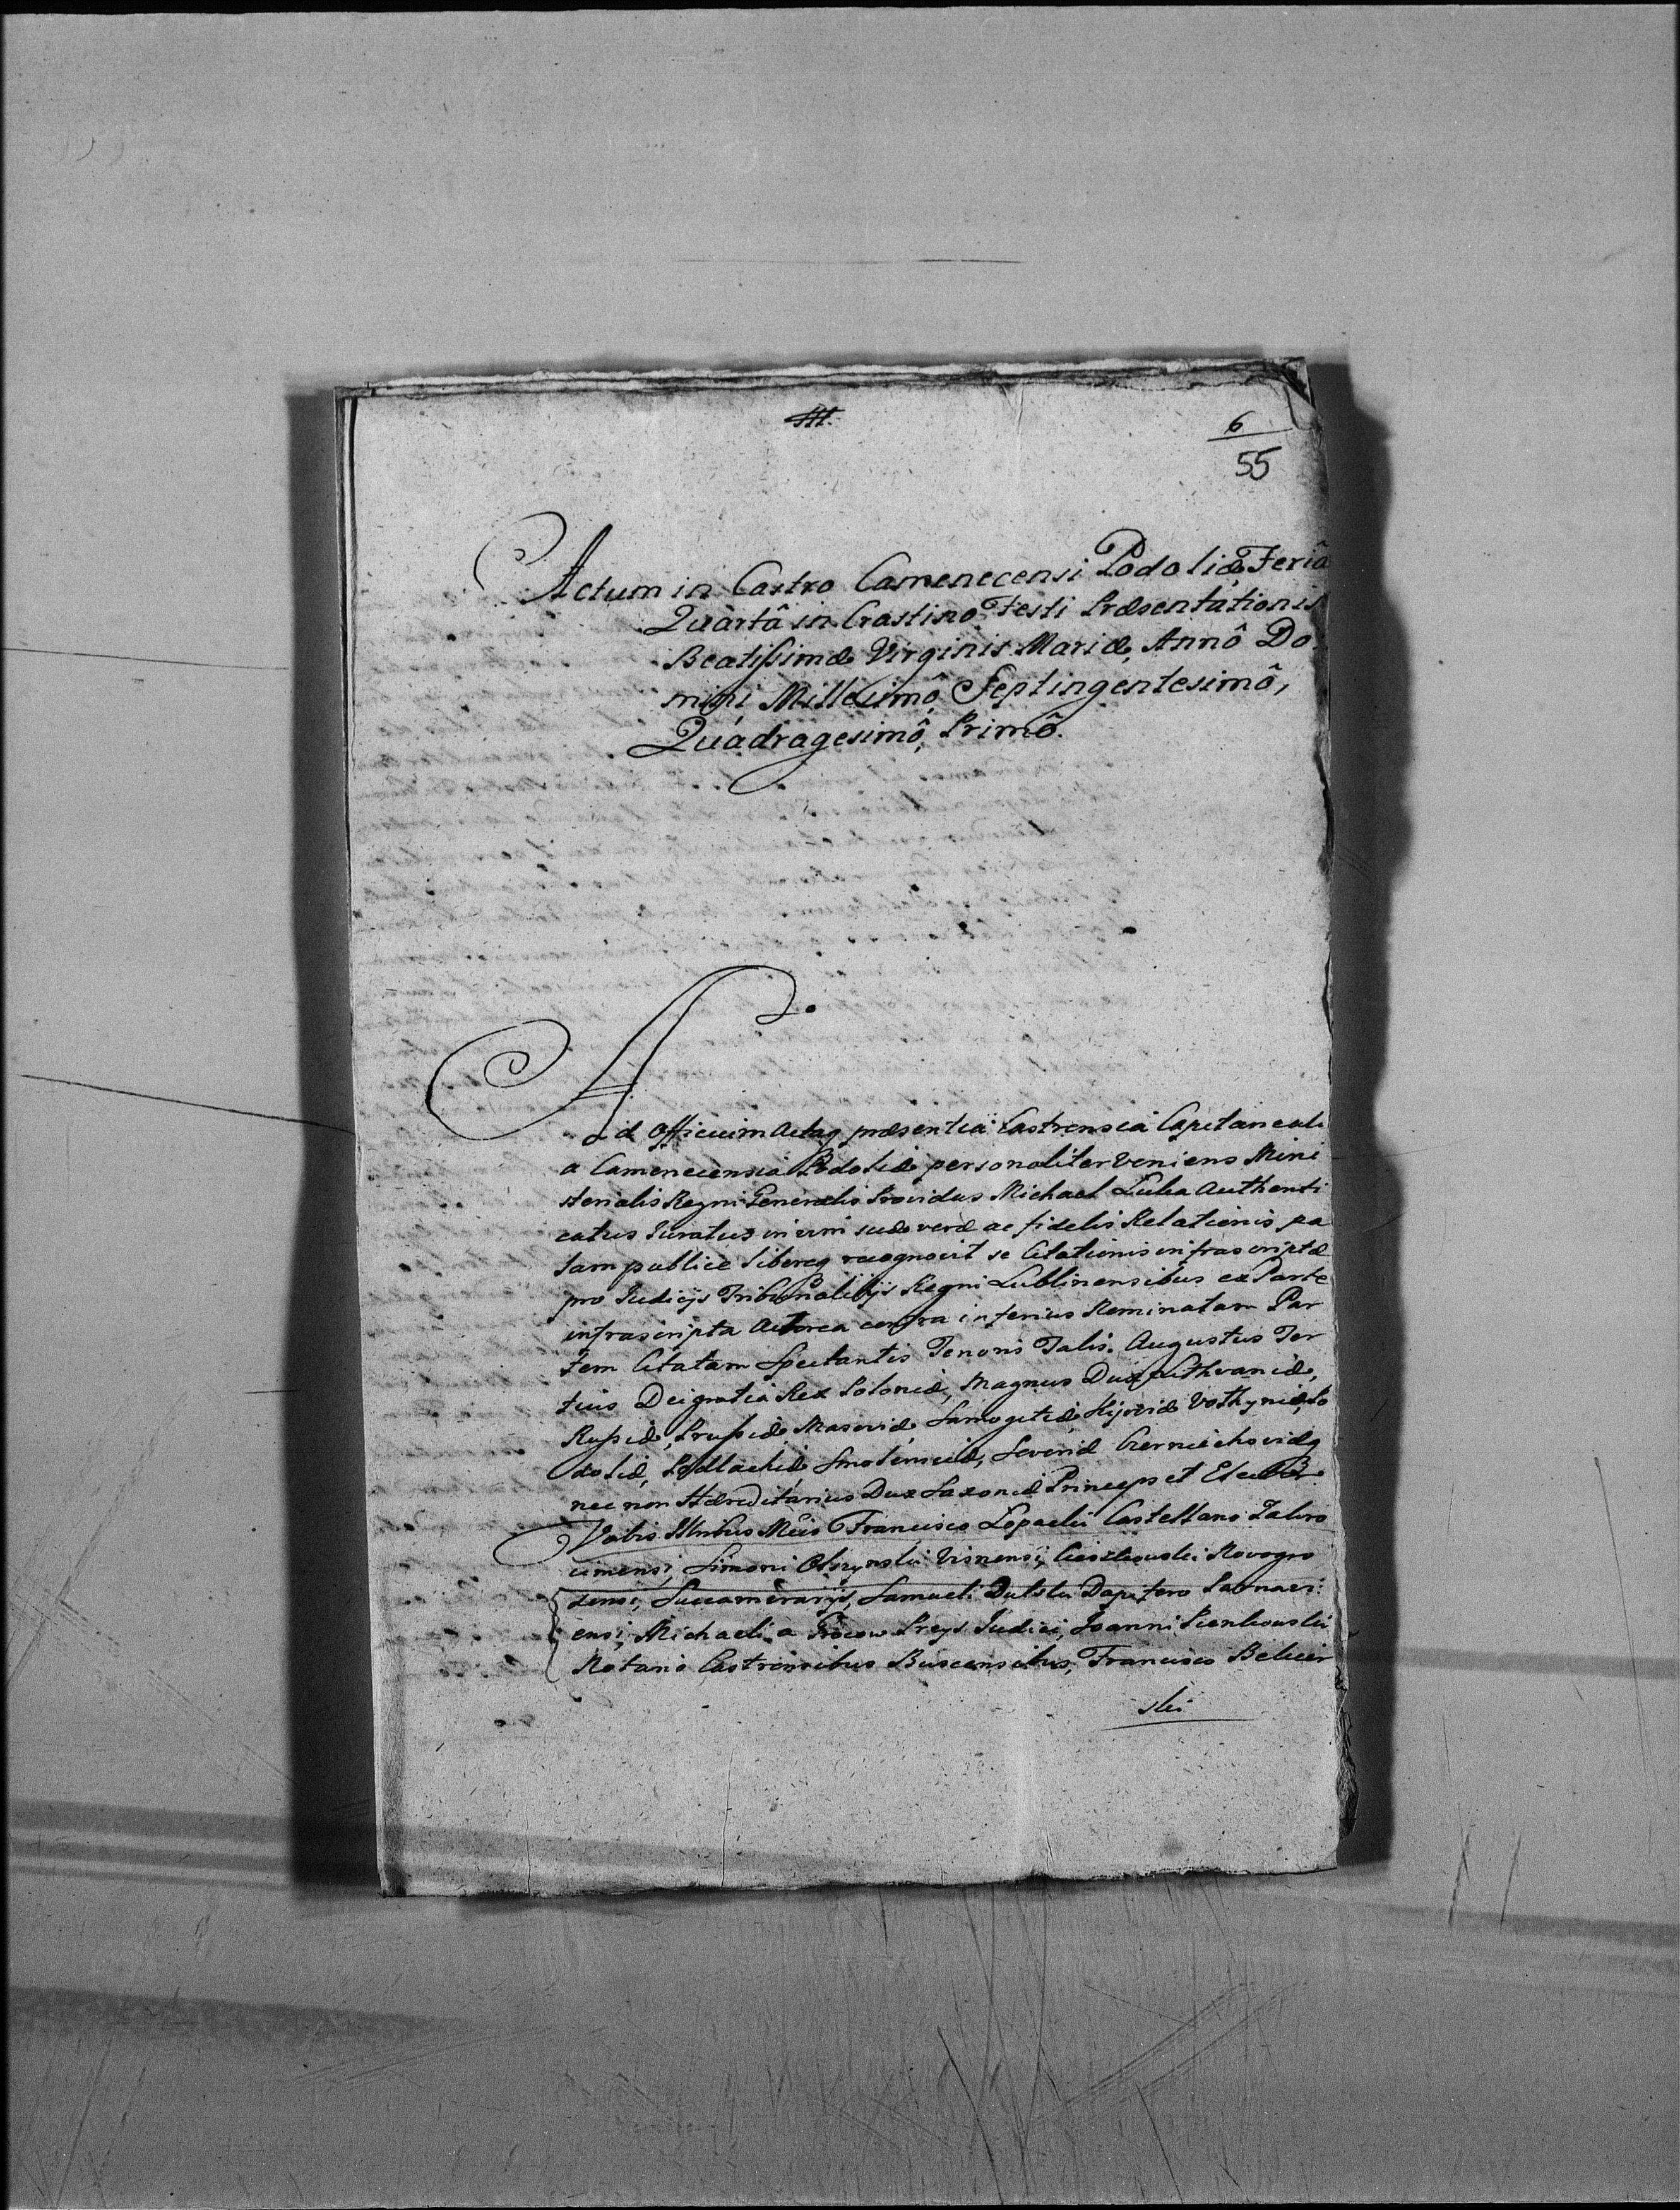 6
55
Actum in Castro Camenecensi Podoliæ, Feriâ
Quartâ in Crastino Festi Præsentationis
Beatissimæ Virginis Mariæ, Annô Do
mini Millesimô, Septingentesimô,
Quadragesimô, Primô.
Ad Officium Actaq præsentia Castrensia Capitaneali
a Camenecensia Podoliæ personaliter veniens Mini
sterialis Regni Generalis Providus Michael Luba Authenti
catus Juratus in vim suæ veræ ac fidelis Relationis pa
lam publice libereq recognovit se Citationis infrascriptæ
pro Judicijs Tribunalitijs Regni Lublinensibus ex Parte
infrascripta Actorea contra inferius Nominatam Par
tem Citatam Spectantis Tenoris Talis. Augustus Ter
tius Dei gratia Rex Poloniæ, Magnus Dux Lithvaniæ,
Russiæ, Prussiæ, Masoviæ, Samogitiæ, Kijoviæ Volhyniæ, Po
doliæ, Podlachiæ Smolensciæ, Severiæ Czerniechoviæq
nec non Hæreditarius Dux Saxoniæ Princeps et Elector
Vobis Francisco Lopacki Castellano Zakro
cimensi, Simoni Olszynski Visnensi, Novogro
densi, Succamerarijs, Samueli Dapifero
ensi, Michaeli a Judici, Joanni
Notario Castrensibus Buscensibus, Francisco
ski